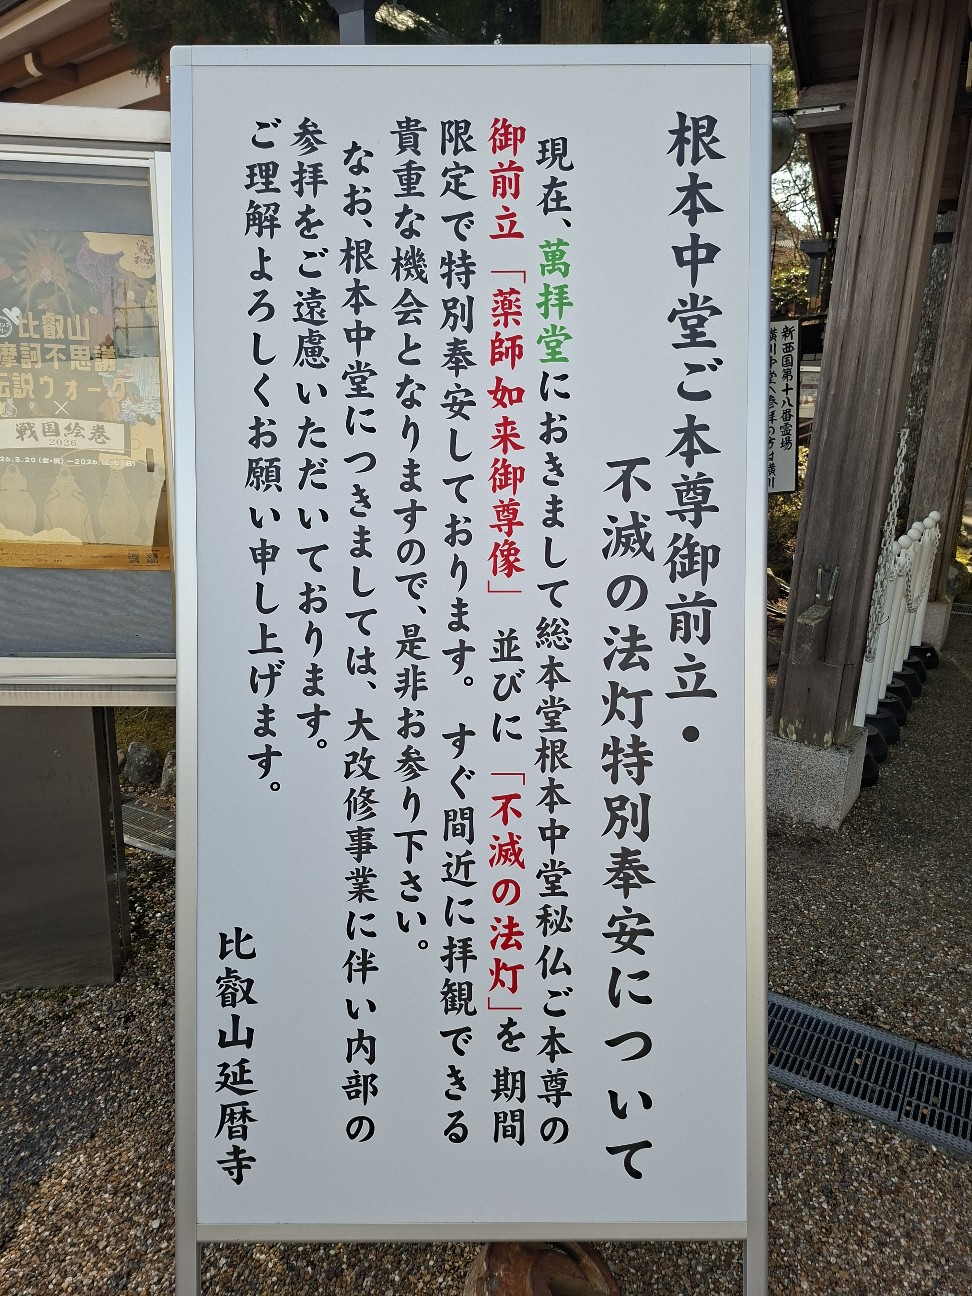 根本中堂ご本尊御前立・
不滅の法灯特別奉安について
現在、萬拝堂におきまして総本堂根本中堂秘仏ご本尊の
御前立「薬師如来御尊像」 並びに「不滅の法灯」を期間
限定で特別奉安しております。すぐ間近に拝観できる
貴重な機会となりますので、是非お参り下さい。
なお、根本中堂につきましては、大改修事業に伴い内部の
参拝をご遠慮いただいております。
ご理解よろしくお願い申し上げます。
比叡山延暦寺
新西国第十八番霊場
横川中堂へ参拝の方は横川
比叡山
摩訶不思議
伝説ウォーク
×
戦国絵巻
2026